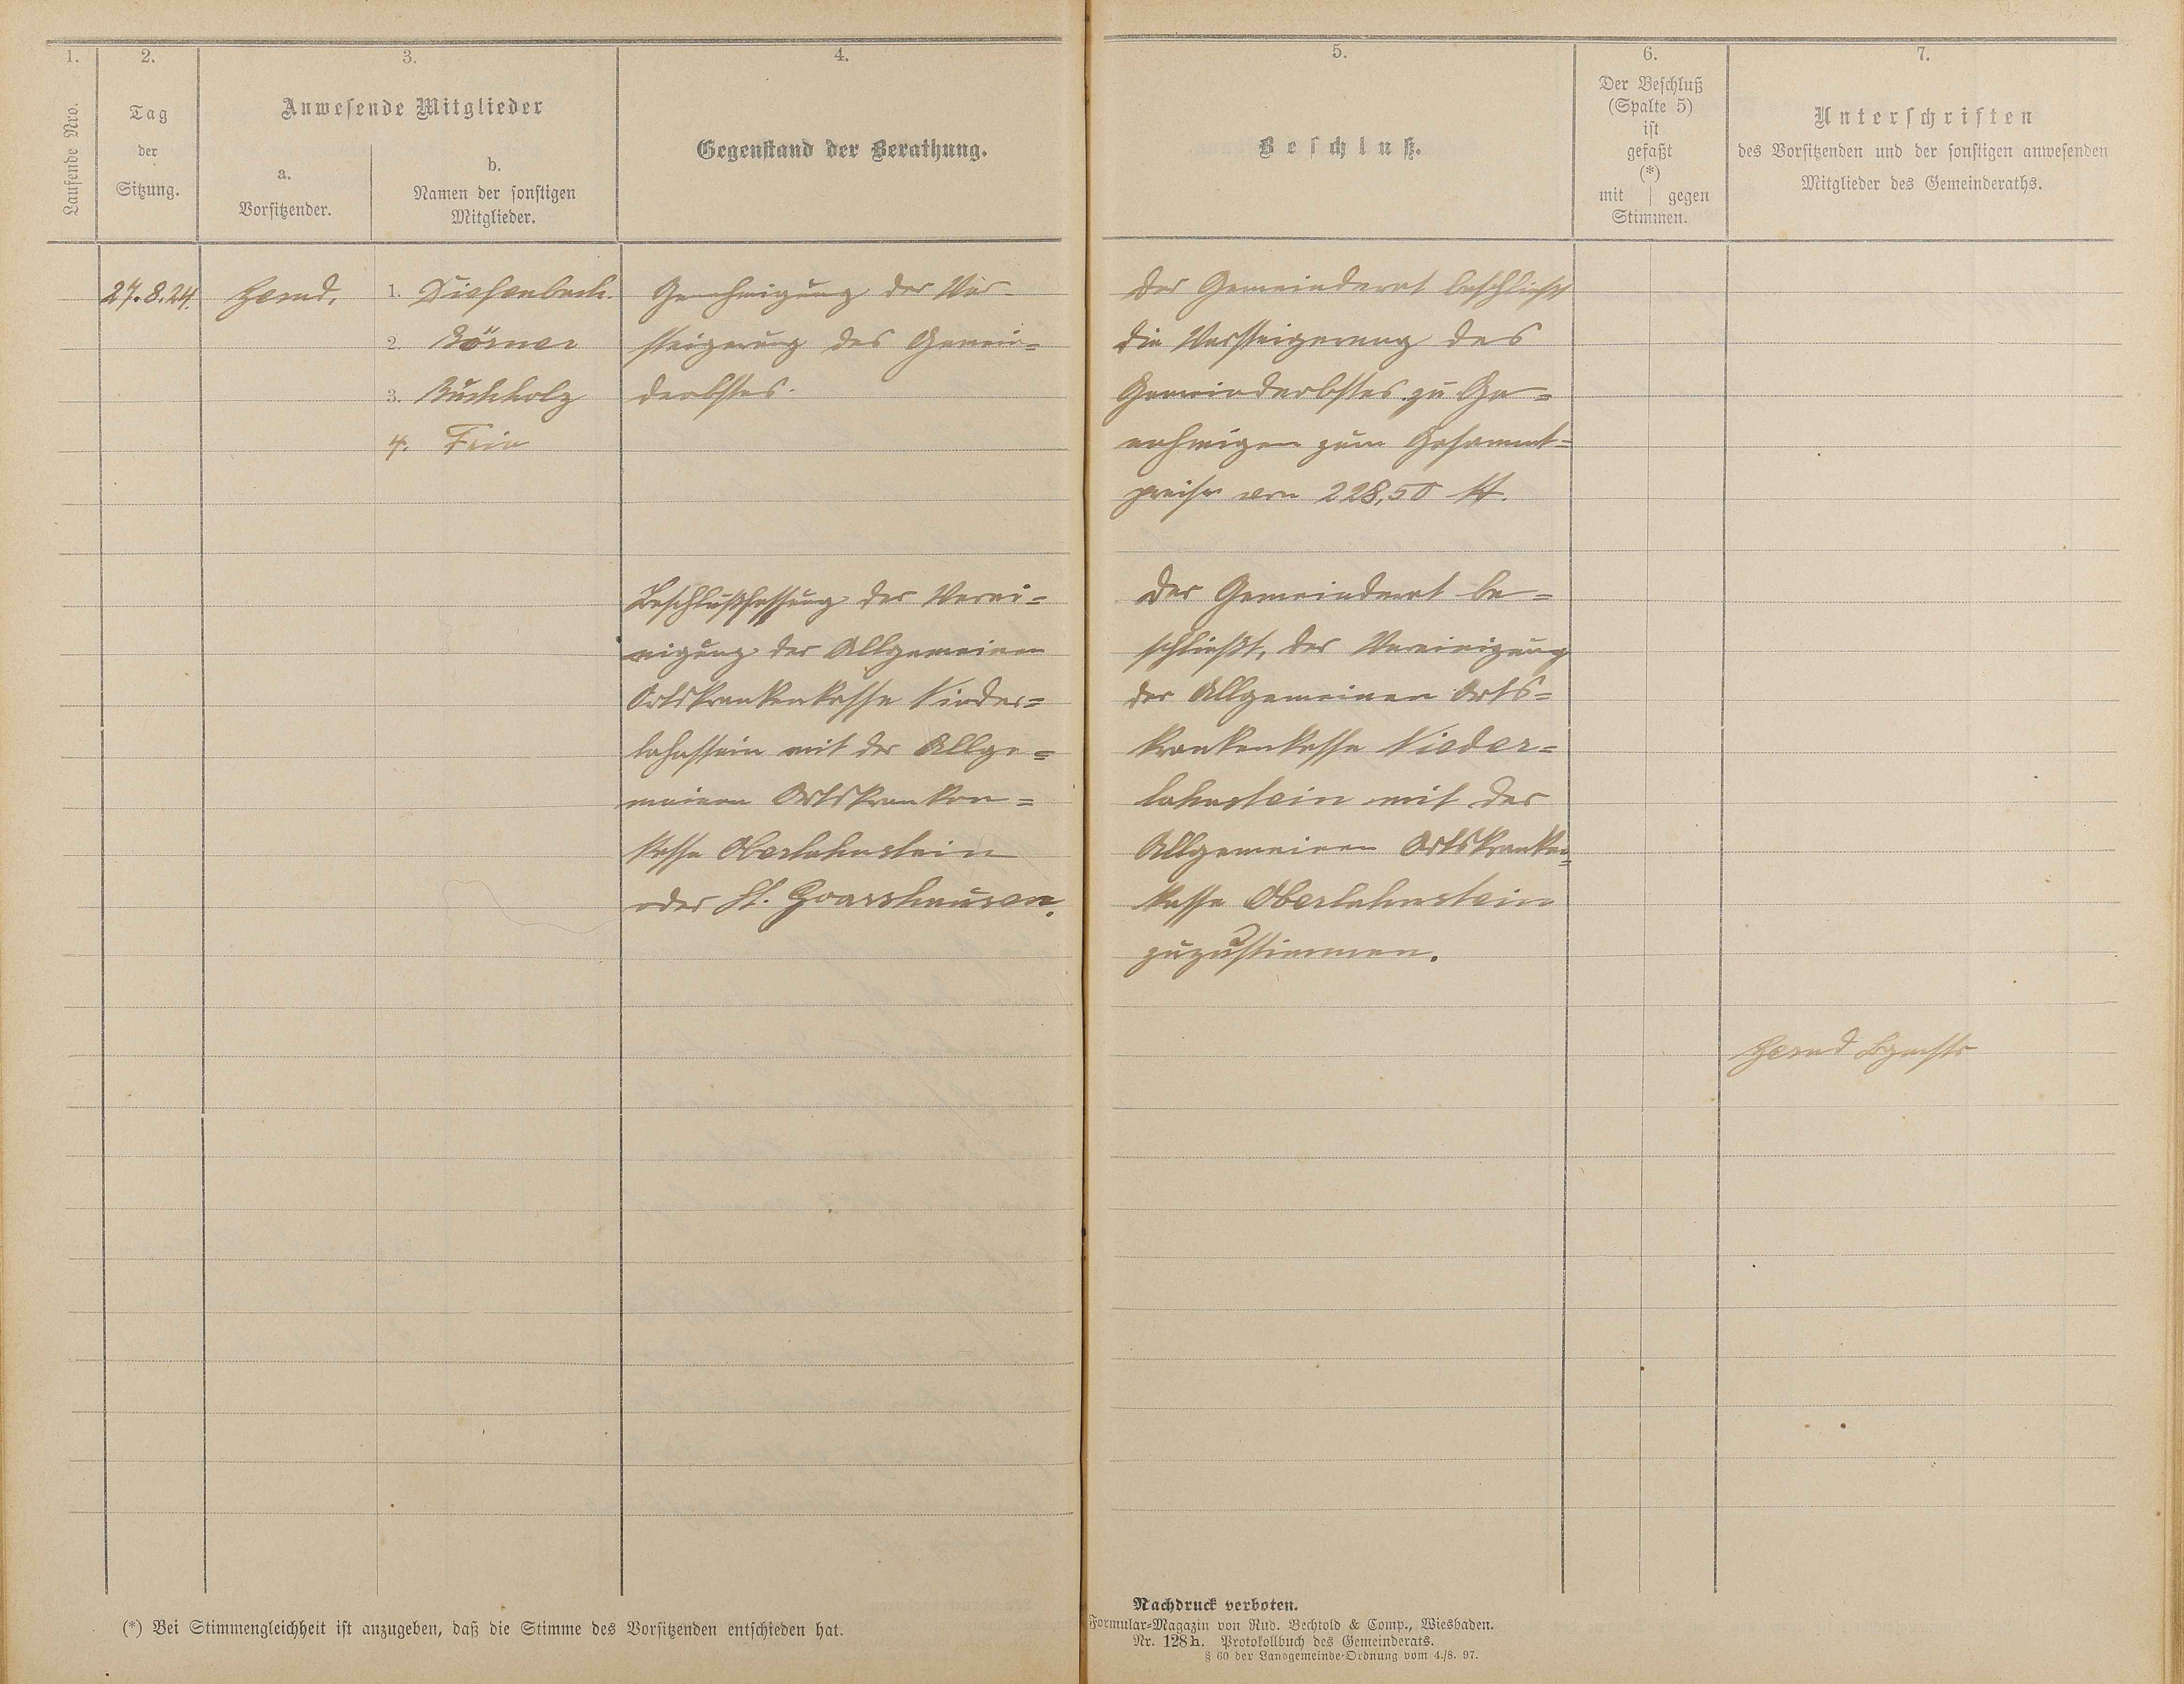 1.
Laufende Nro.
2.
Tag
der
Sitzung.
3.
Anwesende Mitglieder
a.
Vorsitzender.
b.
Namen der sonstigen
Mitglieder.
4.
Gegenstand der Berathung.
5.
Beschluß.
6.
Der Beschluß
(Spalte 5)
ist
gefaßt
(*)
mit | gegen
Stimmen.
7.
Unterschriften
des Vorsitzenden und der sonstigen anwesenden
Mitglieder des Gemeinderaths.
27.8.24.
1. Diefenbach.
2. Körner
3. Buchholz
4.
Genehmigung der Ver-
steigerung des Gemein=
deobstes.
Beschlußfassung der Verei=
nigung der Allgemeinen
Ortskrankenkasse Nieder=
lahnstein mit der Allge=
meinen Ortskranken=
kasse Oberlahnstein
oder St. Goarshausen.
Der Gemeinderat beschließt
die Versteigerung des
Gemeindeobstes zu Ge=
nehmigen zum Gesammt=
preise von 228,50 M.
Der Gemeinderat be=
schließt, der Vereinigung
der Allgemeinen Orts=
krankenkasse Nieder=
lahnstein mit der
Allgemeinen Ortskranken=
kasse Oberlahnstein
zuzustimmen.
(*) Bei Stimmengleichheit ist anzugeben, daß die Stimme des Vorsitzenden entschieden hat.
Nachdruck verboten.
Formular=Magazin von Rud. Bechtold & Comp., Wiesbaden.
Nr. 128 h. Protokollbuch des Gemeinderats.
§ 60 der Landgemeinde-Ordnung vom 4./8. 97.